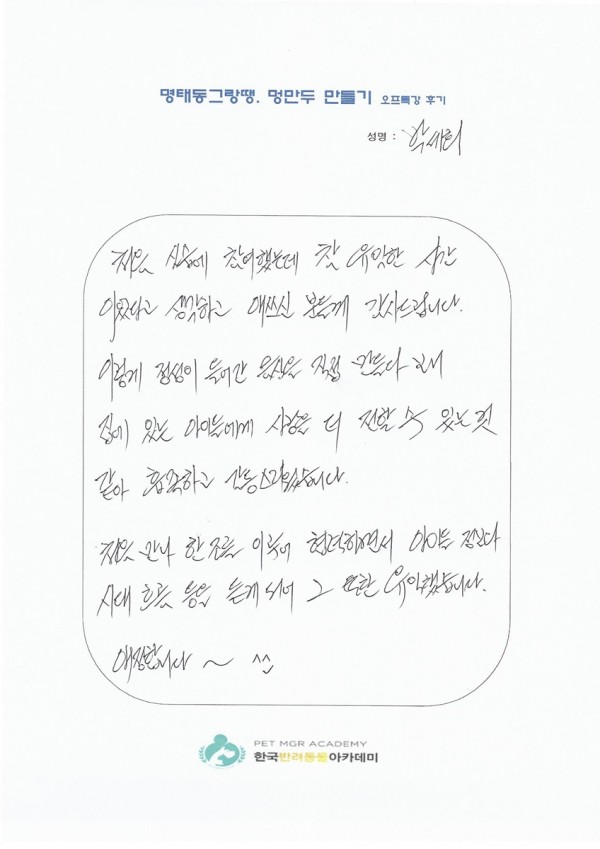 명태동그랑땡. 멍만두 만들기 오프특강 후기
성명 : 박세희
처음 실습에 참여했는데 참 유익한 시간
이었다고 생각하고 애쓰신 분들께 감사드립니다.
이렇게 정성이 들어간 음식을 직접 만들다 보니
집에 있는 아이들에게 사랑을 더 전할 수 있는 것
같아 흡족하고 감동스러웠습니다.
처음 만나 한 조를 이루어 협력하면서 아이들 정보나
시대 흐름 등을 듣게 되어 그 또한 유익했습니다.
애정합니다 ~ ^^
PET MGR ACADEMY
한국반려동물아카데미